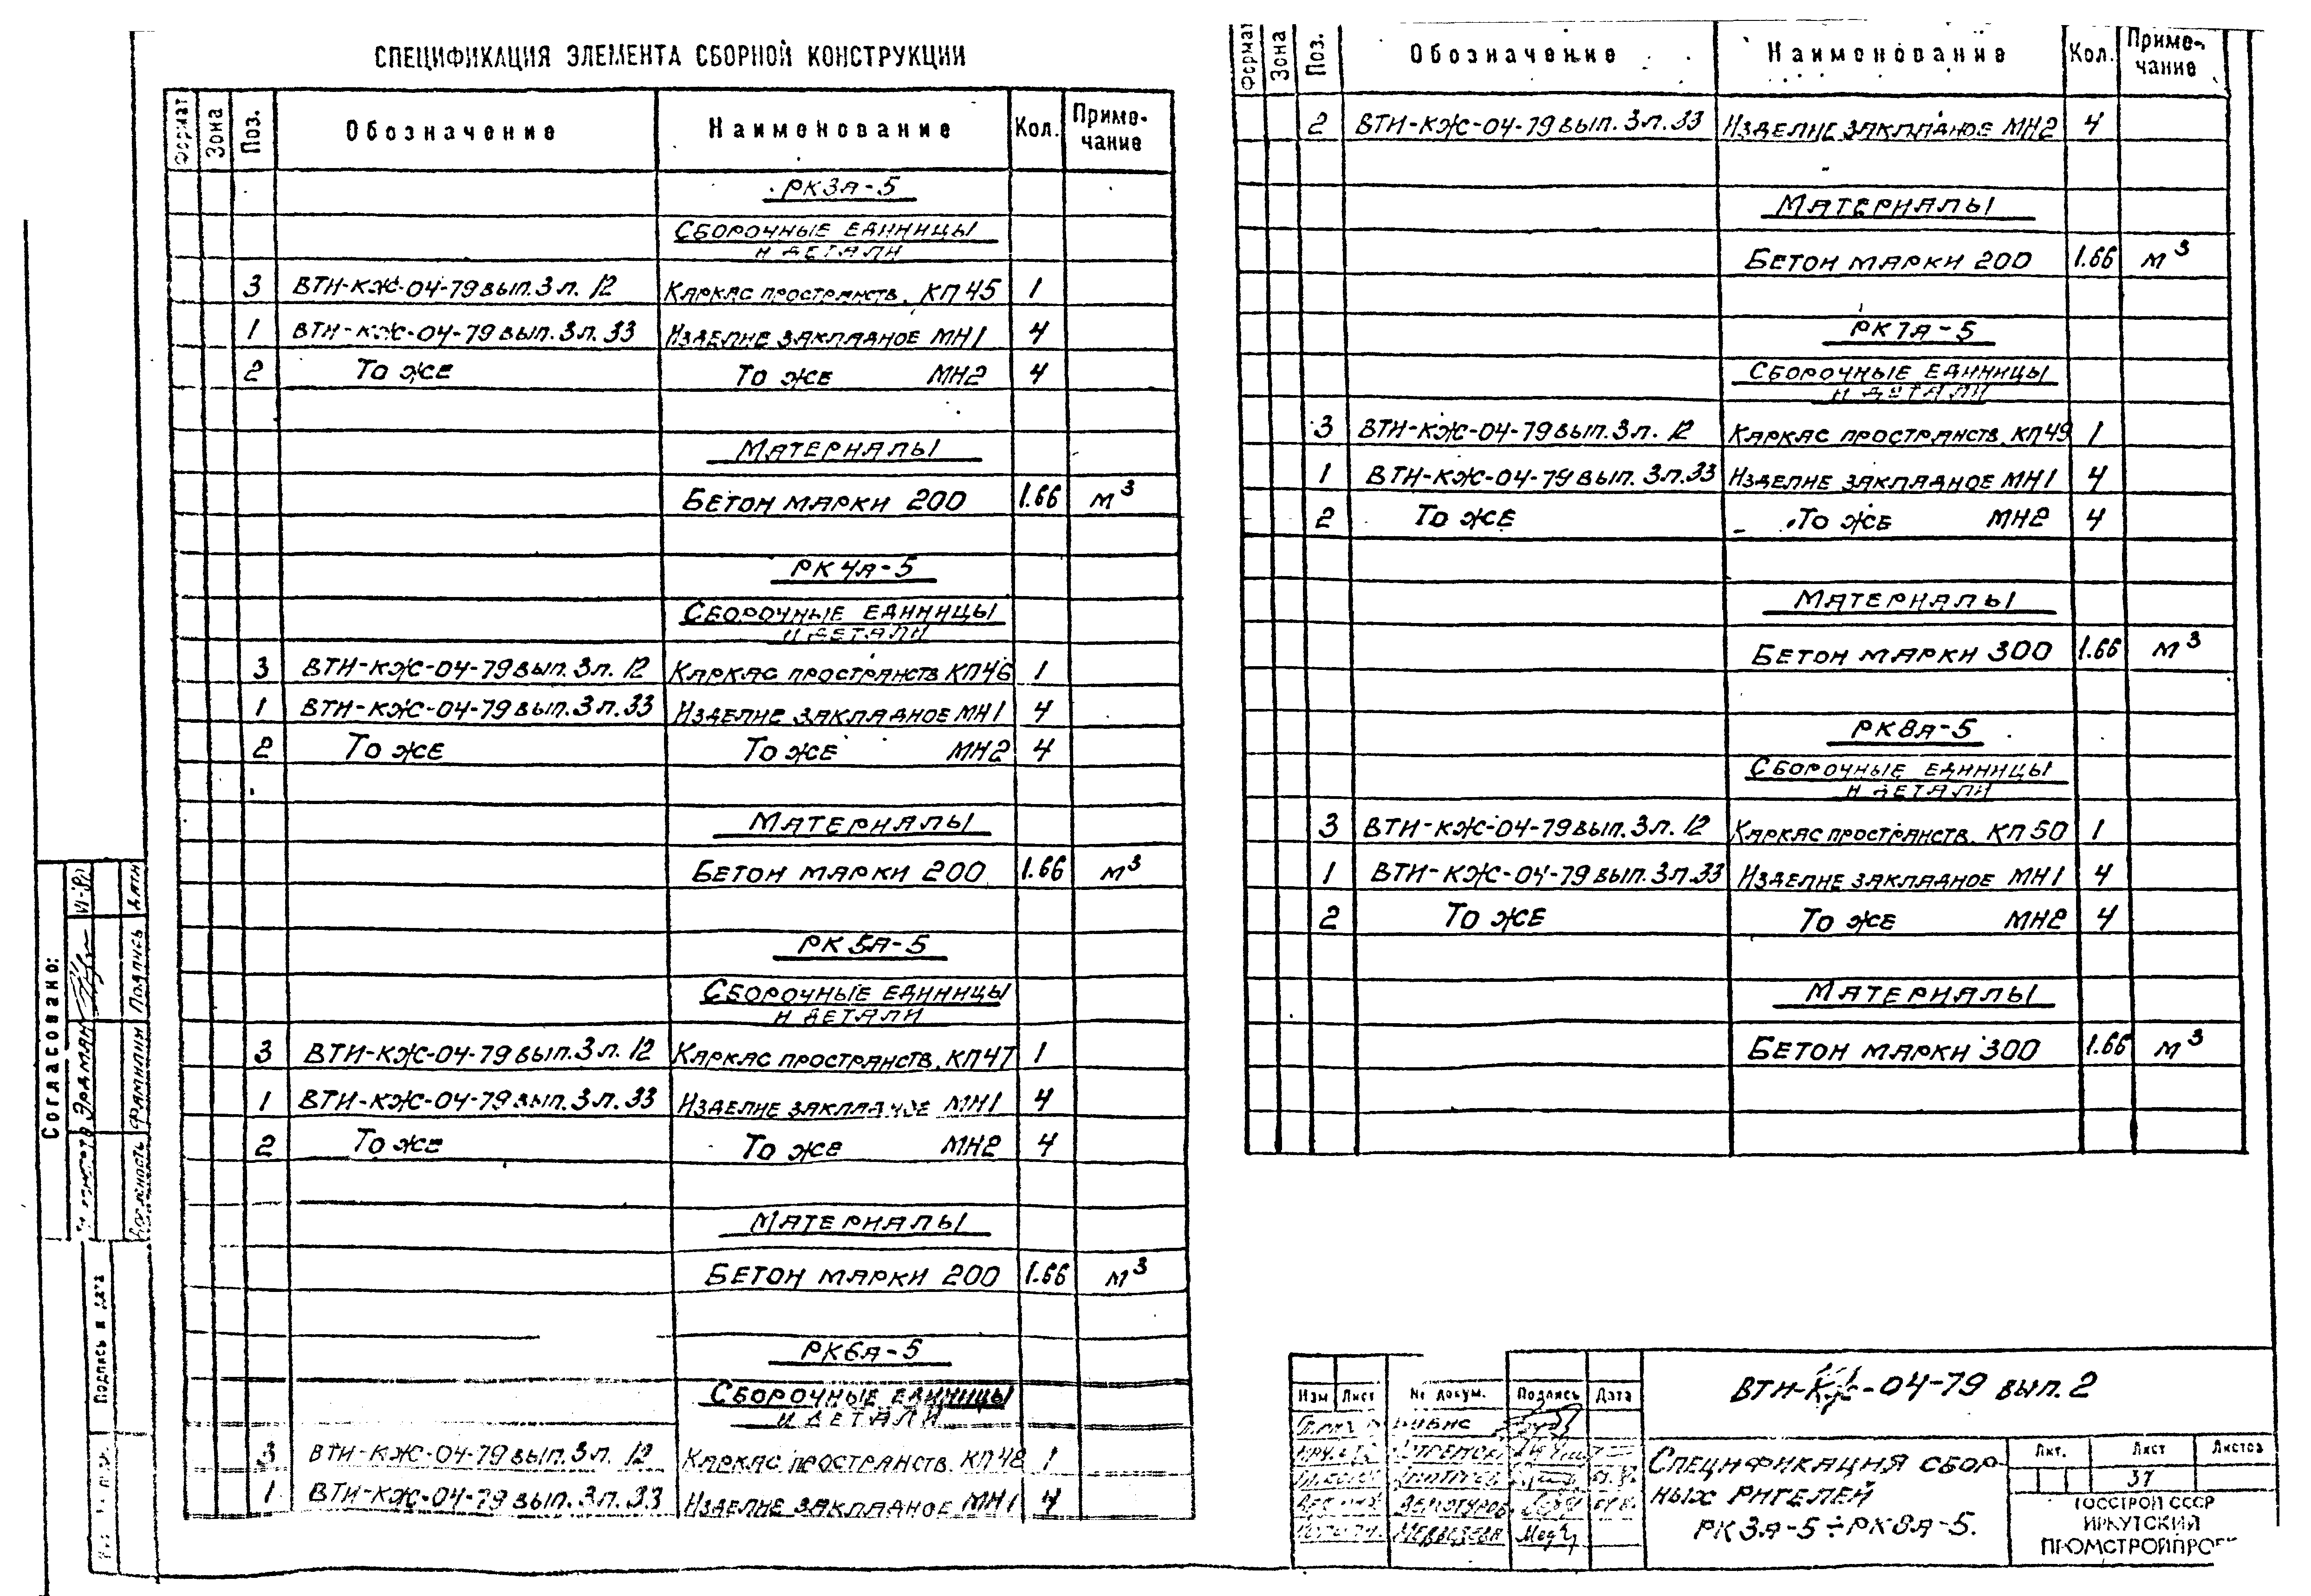 СПЕЦИФИКАЦИЯ ЭЛЕМЕНТА СБОРНОЙ КОНСТРУКЦИИ
Формат Зона Поз. Обозначение Наименование Кол. Примечание
РК3А-5
СБОРОЧНЫЕ ЕДИНИЦЫ
И ДЕТАЛИ
3 ВТИ-КЖ-04-79 вып. 3 л. 12 КАРКАС ПРОСТРАНСТВ. КП45 1
1 ВТИ-КЖ-04-79 вып. 3 л. 33 ИЗДЕЛИЕ ЗАКЛАДНОЕ МН1 4
2 ТО ЖЕ ТО ЖЕ МН2 4
МАТЕРИАЛЫ
БЕТОН МАРКИ 200 1.66 м³
РК4А-5
СБОРОЧНЫЕ ЕДИНИЦЫ
И ДЕТАЛИ
3 ВТИ-КЖ-04-79 вып. 3 л. 12 КАРКАС ПРОСТРАНСТВ КП46 1
1 ВТИ-КЖ-04-79 вып. 3 л. 33 ИЗДЕЛИЕ ЗАКЛАДНОЕ МН1 4
2 ТО ЖЕ ТО ЖЕ МН2 4
МАТЕРИАЛЫ
БЕТОН МАРКИ 200 1.66 м³
РК5А-5
СБОРОЧНЫЕ ЕДИНИЦЫ
И ДЕТАЛИ
3 ВТИ-КЖ-04-79 вып. 3 л. 12 КАРКАС ПРОСТРАНСТВ. КП47 1
1 ВТИ-КЖ-04-79 вып. 3 л. 33 ИЗДЕЛИЕ ЗАКЛАДНОЕ МН1 4
2 ТО ЖЕ ТО ЖЕ МН2 4
МАТЕРИАЛЫ
БЕТОН МАРКИ 200 1.66 м³
РК6А-5
СБОРОЧНЫЕ ЕДИНИЦЫ
И ДЕТАЛИ
3 ВТИ-КЖ-04-79 вып. 3 л. 12 КАРКАС ПРОСТРАНСТВ. КП48 1
1 ВТИ-КЖ-04-79 вып. 3 л. 33 ИЗДЕЛИЕ ЗАКЛАДНОЕ МН1 4
Формат Зона Поз. Обозначение Наименование Кол. Примечание
2 ВТИ-КЖ-04-79 вып. 3 л. 33 ИЗДЕЛИЕ ЗАКЛАДНОЕ МН2 4
МАТЕРИАЛЫ
БЕТОН МАРКИ 200 1.66 м³
РК7А-5
СБОРОЧНЫЕ ЕДИНИЦЫ
И ДЕТАЛИ
3 ВТИ-КЖ-04-79 вып. 3 л. 12 КАРКАС ПРОСТРАНСТВ. КП49 1
1 ВТИ-КЖ-04-79 вып. 3 л. 33 ИЗДЕЛИЕ ЗАКЛАДНОЕ МН1 4
2 ТО ЖЕ ТО ЖЕ МН2 4
МАТЕРИАЛЫ
БЕТОН МАРКИ 300 1.66 м³
РК8А-5
СБОРОЧНЫЕ ЕДИНИЦЫ
И ДЕТАЛИ
3 ВТИ-КЖ-04-79 вып. 3 л. 12 КАРКАС ПРОСТРАНСТВ. КП50 1
1 ВТИ-КЖ-04-79 вып. 3 л. 33 ИЗДЕЛИЕ ЗАКЛАДНОЕ МН1 4
2 ТО ЖЕ ТО ЖЕ МН2 4
МАТЕРИАЛЫ
БЕТОН МАРКИ 300 1.66 м³
Согласовано:
ЭРДМАН
ФАМИЛИЯ ПОДПИСЬ ДАТА
Подпись и дата
Изм Лист № докум. Подпись Дата
МЕДВЕДЕВА
ВТИ-КЖ-04-79 вып. 2
СПЕЦИФИКАЦИЯ СБОР-
НЫХ РИГЕЛЕЙ
РК3А-5÷РК8А-5.
Лит. Лист Листов
37
ГОССТРОЙ СССР
ИРКУТСКИЙ
ПРОМСТРОЙПРОЕ